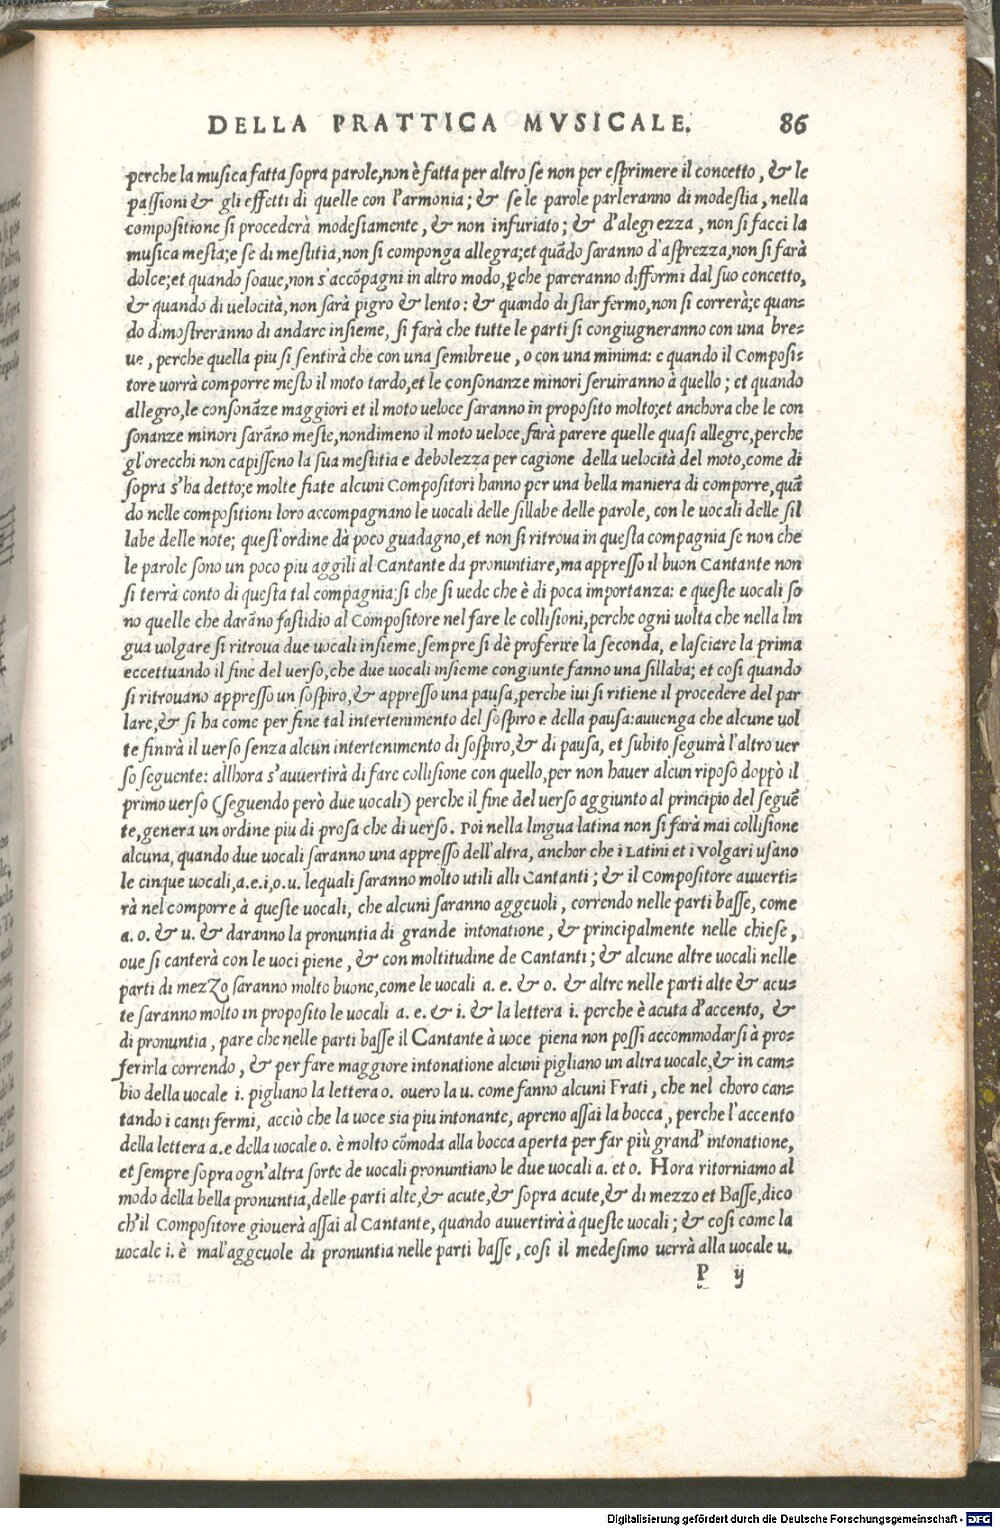 DELLA PRATTICA MVSICALE. 86
perche la musica fatta sopra parole,non è fatta per altro se non per esprimere il concetto, & le
passioni & gli effetti di quelle con l'armonia; & se le parole parleranno di modestia, nella
compositione si procederà modestamente, & non infuriato; & d'alegrezza, non si facci la
musica mesta;e se di mestitia,non si componga allegra;et quādo saranno d'asprezza,non si farà
dolce;et quando soaue,non s'accōpagni in altro modo,ꝑche pareranno difformi dal suo concetto,
& quando di uelocità,non sarà pigro & lento: & quando di star fermo,non si correrà;e quan=
do dimostreranno di andare insieme, si farà che tutte le parti si congiugneranno con una bre=
ue, perche quella piu si sentirà che con una semibreue, o con una minima: e quando il Composi=
tore uorrà comporre mesto il moto tardo,et le consonanze minori seruiranno à quello; et quando
allegro,le consonāze maggiori et il moto ueloce saranno in proposito molto;et anchora che le con
sonanze minori sarāno meste,nondimeno il moto ueloce,farà parere quelle quasi allegre,perche
gl'orecchi non capisseno la sua mestitia e debolezza per cagione della uelocità del moto,come di
sopra s'ha detto;e molte fiate alcuni Compositori hanno per una bella maniera di comporre,quā
do nelle compositioni loro accompagnano le uocali delle sillabe delle parole, con le uocali delle sil
labe delle note; quest'ordine dà poco guadagno,et non si ritroua in questa compagnia se non che
le parole sono un poco piu aggili al Cantante da pronuntiare,ma appresso il buon Cantante non
si terrà conto di questa tal compagnia;si che si uede che è di poca importanza: e queste uocali so
no quelle che darāno fastidio al Compositore nel fare le collisioni,perche ogni uolta che nella lin
gua uolgare si ritroua due uocali insieme,sempre si dè proferire la seconda, e lasciare la prima
eccettuando il fine del uerso,che due uocali insieme congiunte fanno una sillaba; et cosi quando
si ritrouano appresso un sospiro,& appresso una pausa,perche iui si ritiene il procedere del par
lare,& si ha come per fine tal intertenimento del sospiro e della pausa:auuenga che alcune uol
te finirà il uerso senza alcun intertenimento di sospiro,& di pausa, et subito seguirà l'altro uer
so seguente: allhora s'auuertirà di fare collisione con quello,per non hauer alcun riposo doppò il
primo uerso (seguendo però due uocali) perche il fine del uerso aggiunto al principio del seguē
te,genera un ordine piu di prosa che di uerso. Poi nella lingua latina non si farà mai collisione
alcuna, quando due uocali saranno una appresso dell'altra, anchor che i Latini et i Volgari usano
le cinque uocali,a.e.i,o.u. lequali saranno molto utili alli Cantanti; & il Compositore auuerti=
rà nel comporre à queste uocali, che alcuni saranno aggeuoli, correndo nelle parti basse, come
a. o. & u. & daranno la pronuntia di grande intonatione, & principalmente nelle chiese,
oue si canterà con le uoci piene, & con moltitudine de Cantanti; & alcune altre uocali nelle
parti di mezZo saranno molto buone,come le uocali a. e. & o. & altre nelle parti alte & acu=
te saranno molto in proposito le uocali a. e. & i. & la lettera i. perche è acuta d'accento, &
di pronuntia, pare che nelle parti basse il Cantante à uoce piena non possi accommodarsi à pro=
ferirla correndo, & per fare maggiore intonatione alcuni pigliano un altra uocale,& in cam=
bio della uocale i. pigliano la lettera o. ouero la u. come fanno alcuni Frati, che nel choro can=
tando i canti fermi, acciò che la uoce sia piu intonante, apreno assai la bocca, perche l'accento
della lettera a.e della uocale o. è molto cōmoda alla bocca aperta per far più grand' intonatione,
et sempre sopra ogn'altra sorte de uocali pronuntiano le due uocali a. et o. Hora ritorniamo al
modo della bella pronuntia,delle parti alte,& acute,& sopra acute,& di mezzo et Basse,dico
ch'il Compositore giouerà assai al Cantante, quando auuertirà à queste uocali; & cosi come la
uocale i. è mal'aggeuole di pronuntia nelle parti basse, cosi il medesimo uerrà alla uocale u.
P ij
Digitalisierung gefördert durch die Deutsche Forschungsgemeinschaft - DFG